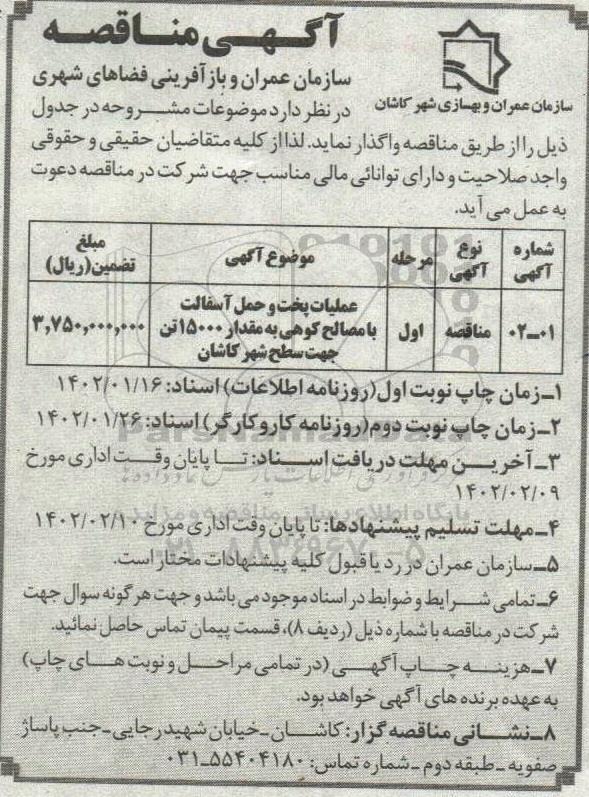 آگهی مناقصه
سازمان عمران و بهسازی شهر کاشان
سازمان عمران و بازآفرینی فضاهای شهری
در نظر دارد موضوعات مشروحه در جدول
ذیل را از طریق مناقصه واگذار نماید. لذا از کلیه متقاضیان حقیقی و حقوقی
واجد صلاحیت و دارای توانائی مالی مناسب جهت شرکت در مناقصه دعوت
به عمل می آید.
شماره آگهی | نوع آگهی | مرحله | موضوع آگهی | مبلغ تضمین (ریال)
۰۲-۰۱ | مناقصه | اول | عملیات پخت و حمل آسفالت با مصالح کوهی به مقدار ۱۵۰۰۰ تن جهت سطح شهر کاشان | ۳,۷۵۰,۰۰۰,۰۰۰
۱ـ زمان چاپ نوبت اول (روزنامه اطلاعات) اسناد: ۱۴۰۲/۰۱/۱۶
۲ـ زمان چاپ نوبت دوم (روزنامه کار و کارگر) اسناد: ۱۴۰۲/۰۱/۲۶
۳ـ آخرین مهلت دریافت اسناد: تا پایان وقت اداری مورخ
۱۴۰۲/۰۲/۰۹
۴ـ مهلت تسلیم پیشنهادها: تا پایان وقت اداری مورخ ۱۴۰۲/۰۲/۱۰
۵ـ سازمان عمران در رد یا قبول کلیه پیشنهادات مختار است.
۶ـ تمامی شرایط و ضوابط در اسناد موجود می باشد و جهت هرگونه سوال جهت
شرکت در مناقصه با شماره ذیل (ردیف ۸)، قسمت پیمان تماس حاصل نمائید.
۷ـ هزینه چاپ آگهی (در تمامی مراحل و نوبت های چاپ)
به عهده برنده های آگهی خواهد بود.
۸ـ نشانی مناقصه گزار: کاشان ـ خیابان شهید رجایی ـ جنب پاساژ
صفویه ـ طبقه دوم ـ شماره تماس: ۵۵۴۰۴۱۸۰-۰۳۱